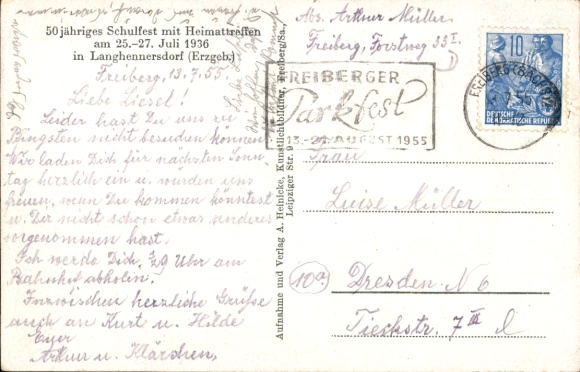 50jähriges Schulfest mit Heimattreffen
am 25.-27. Juli 1936
in Langhennersdorf (Erzgeb.)
Freiberg, 13.7.55.
Liebe Liesel!
Leider hast Du uns zu
Pfingsten nicht besuchen können.
Wir laden Dich für nächsten Sonn-
tag herzlich ein u. würden uns
freuen, wenn Du kommen könntest
u. Dir nicht schon etwas anderes
vorgenommen hast.
Ich werde Dich ½9 Uhr am
Bahnhof abholen.
Inzwischen herzliche Grüße
auch an Kurt u. Hilde
Euer
Arthur u. Klärchen.
Aufnahme und Verlag A. Heinicke, Kunstlichtbildner, Freiberg/Sa.,
Leipziger Str. 9
Abs. Arthur Müller
Freiberg, Forstweg 33 I.
FREIBERGER
Parkfest
13.-21. AUGUST 1955
10
DEUTSCHE
DEMOKRATISCHE REPUBLIK
FREIBERG (SACHS)
Frau
Luise Müller
10a
Dresden N 6
Tieckstr. 7 III l